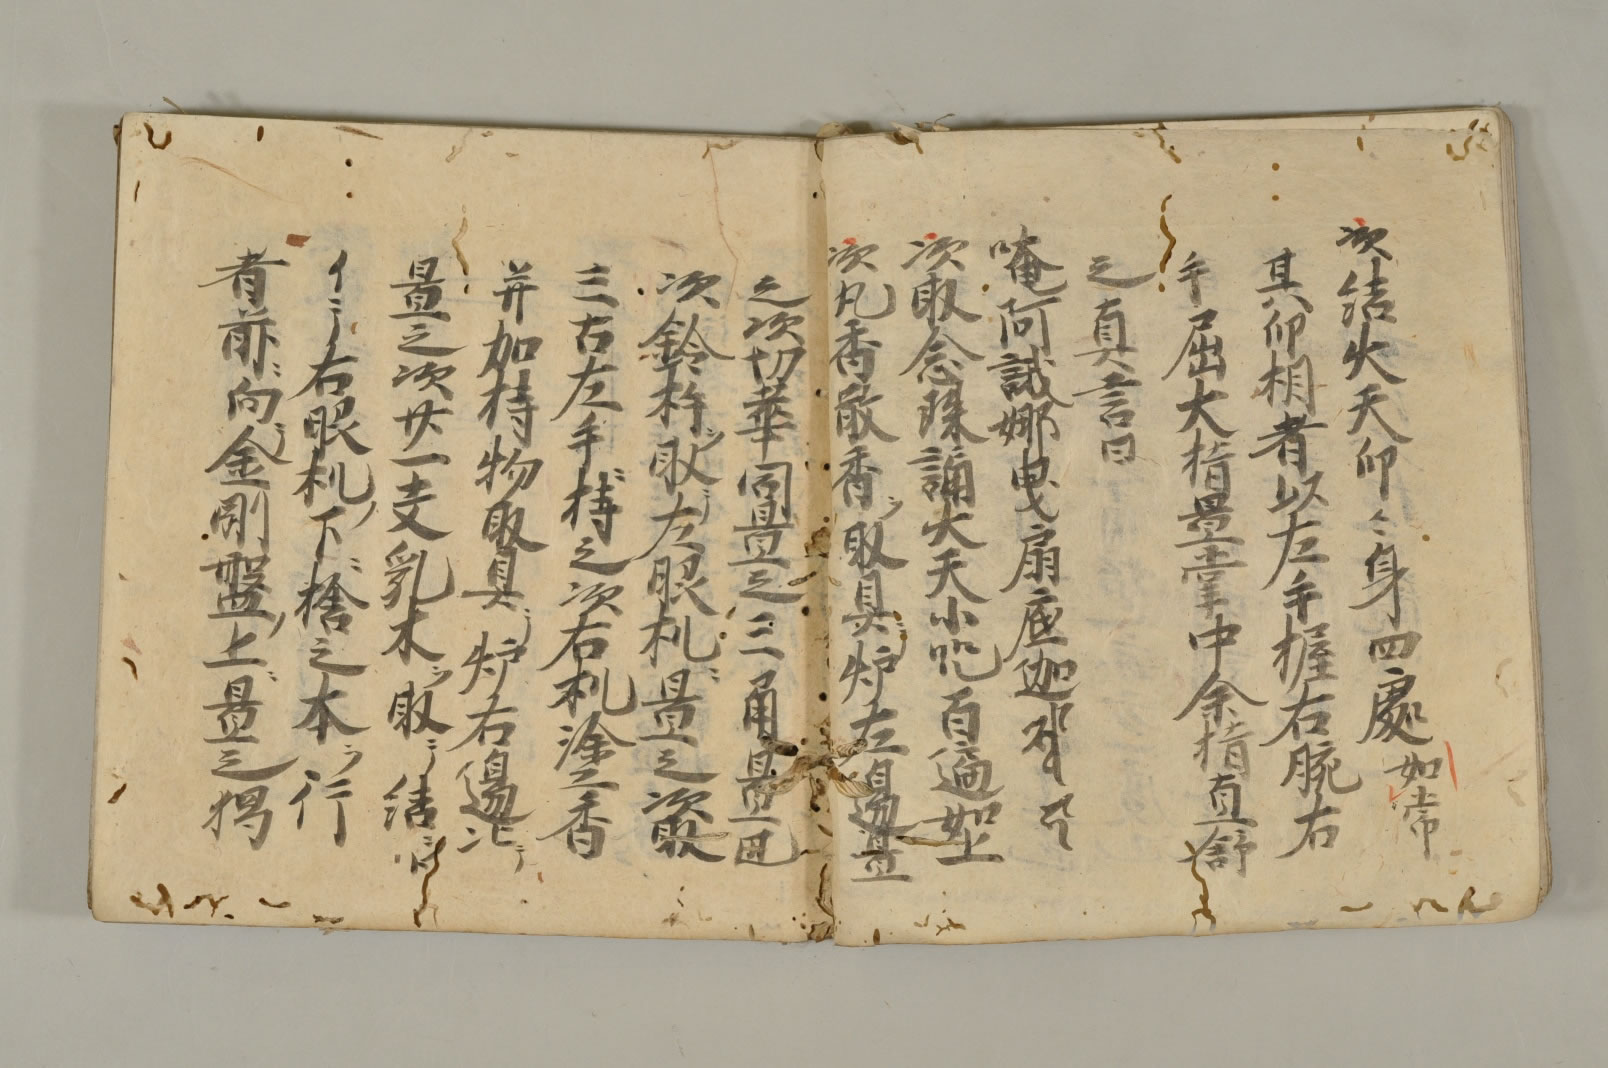 次結火天印〻身四處如常
其印相者以左手握右腕右
手屈大指置掌中余指直舒
之真言曰
唵阿誐娜曳扇底迦
次取念珠誦火天小咒百遍如上
次丸香散香ヲ取具ニ炉左邊置
之次切華同置之三角置
次鈴杵ヲ取ニ左眼机ニ置之次取
三古左手ニ持之次右机塗香
并加持物取具ニ炉右邊
置之次廿一支乳木ヲ取ニ結
右眼机ノ下ニ捨之本ヲ行
者前ニ向ニ金剛盤ノ上ニ置之